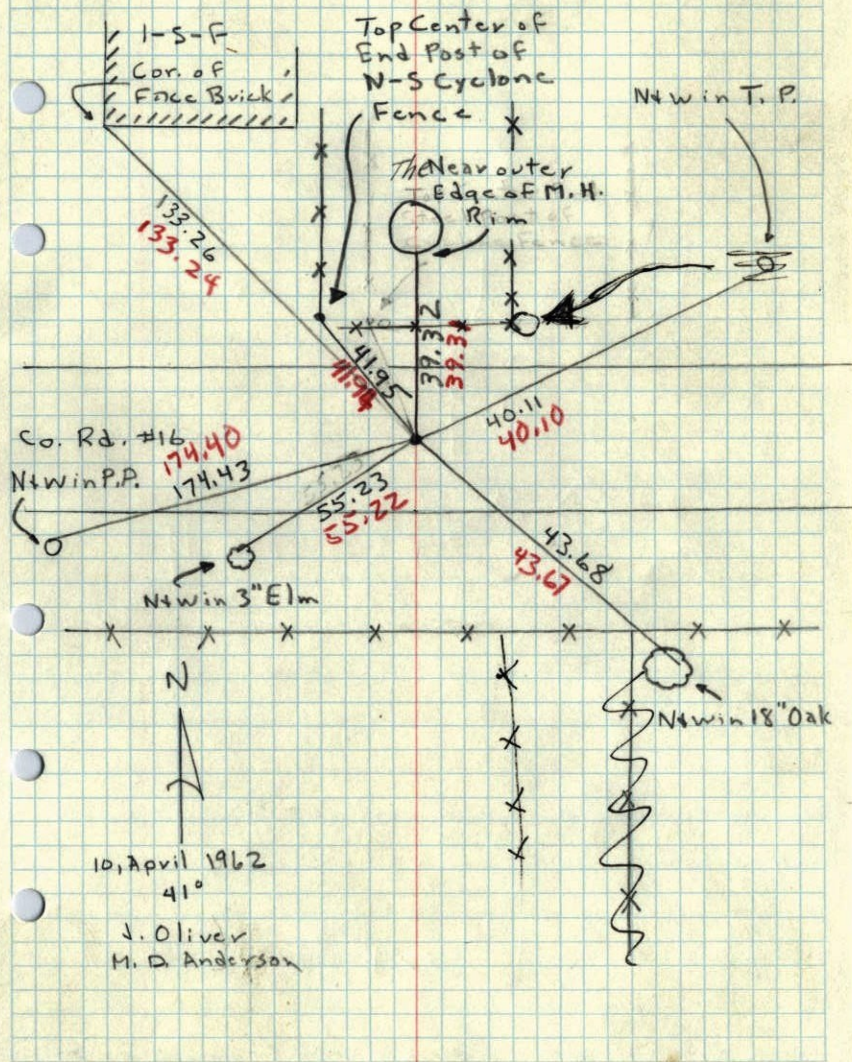 1-S-F
Cor. of
Face Brick
Top Center of
End Post of
N-S Cyclone
Fence
N&W in T. P.
The Near outer
Edge of M.H.
Rim
133.26
133.24
41.95
41.94
39.32
39.31
40.11
40.10
Co. Rd. #16
174.40
174.43
N&W in P.P.
55.23
55.22
N&W in 3" Elm
43.68
43.67
N&W in 18" Oak
N
10, April 1962
41°
J. Oliver
M. D. Anderson